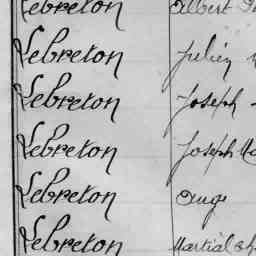 Lebreton Albert
Lebreton Julien
Lebreton Joseph
Lebreton Joseph
Lebreton Ange
Lebreton Martial